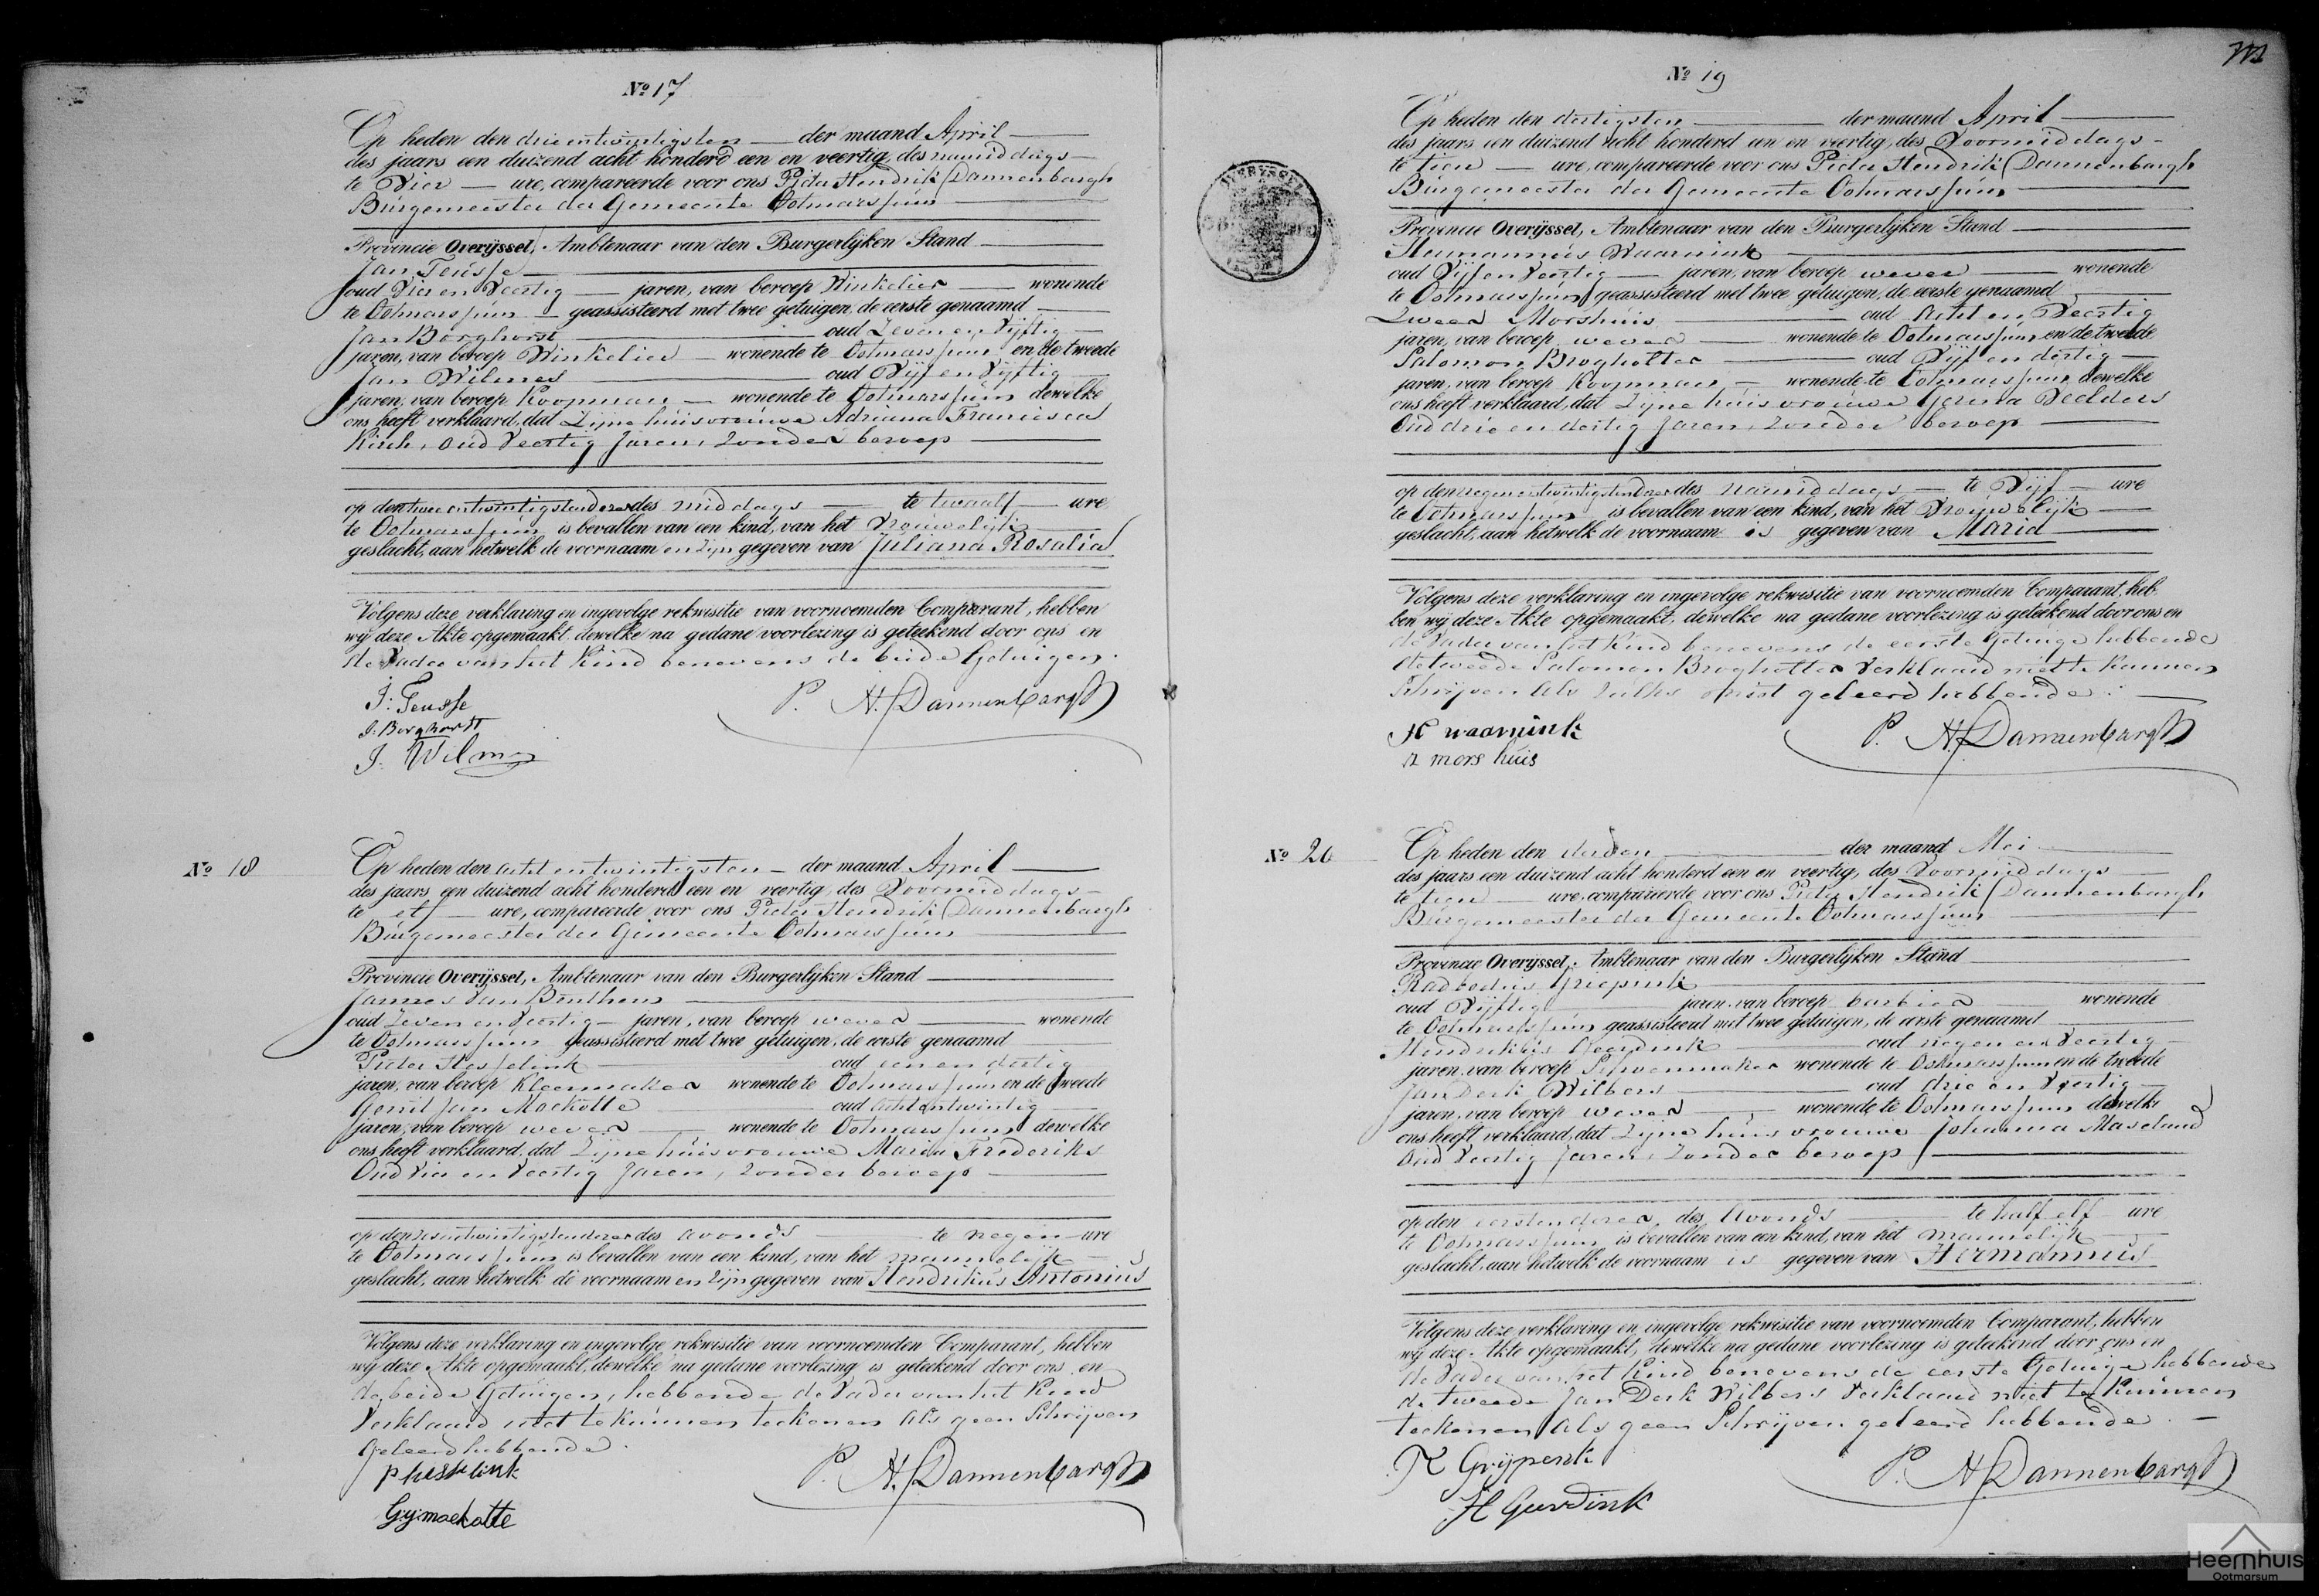 No 17
Op heden den drie entwintigsten der maand April
des jaars een duizend acht honderd een en veertig, des namiddags
te Vier ure, compareerde voor ons Pieter Hendrik Dannenbargh
Burgemeester der Gemeente Ootmarssum
Provincie Overijssel, Ambtenaar van den Burgerlijken Stand
Jan Teusse
oud Vier en Veertig jaren, van beroep Winkelier wonende
te Ootmarssum geassisteerd met twee getuigen, de eerste genaamd
Jan Borghorst oud Zeven en Vijftig
jaren, van beroep Winkelier wonende te Ootmarssum en de tweede
Jan Wilmes oud Vijf en Vijftig
jaren, van beroep Koopman wonende te Ootmarssum dewelke
ons heeft verklaard, dat Zijne huisvrouwe Adriana Francisca
Kirch, oud Veertig Jaren, Zonder beroep
op den twee entwintigsten dezer des middags te twaalf ure
te Ootmarssum is bevallen van een kind, van het Vrouwelijk
geslacht, aan hetwelk de voornaam en Zijn gegeven van Juliana Rosalia
Volgens deze verklaring en ingevolge rekwisitie van voornoemden Comparant, hebben
wij deze Akte opgemaakt dewelke na gedane voorlezing is geteekend door ons en
de Vader van het Kind benevens de beide Getuigen.
J: Teusse
J: Borghorst
J. Wilmes
P. H. Dannenbargh
No 18
Op heden den acht entwintigsten der maand April
des jaars een duizend acht honderd een en veertig, des Voormiddags
te elf ure, compareerde voor ons Pieter Hendrik Dannenbargh
Burgemeester der Gemeente Ootmarssum
Provincie Overijssel, Ambtenaar van den Burgerlijken Stand
Jannes Van Benthem
oud Zeven en Veertig jaren, van beroep wever wonende
te Ootmarssum geassisteerd met twee getuigen, de eerste genaamd
Pieter Hesselink oud een en dertig
jaren, van beroep Kleermaker wonende te Ootmarssum en de tweede
Gerrit Jan Mockotte oud acht entwintig
jaren, van beroep wever wonende te Ootmarssum dewelke
ons heeft verklaard, dat Zijne huisvrouwe Maria Frederiks
Oud Vier en Veertig Jaren, Zonder beroep
op den zes entwintigsten dezer des avonds te negen ure
te Ootmarssum is bevallen van een kind, van het mannelijk
geslacht, aan hetwelk de voornaam en Zijn gegeven van Hendrikus Antonius
Volgens deze verklaring en ingevolge rekwisitie van voornoemden Comparant, hebben
wij deze Akte opgemaakt, dewelke na gedane voorlezing is geteekend door ons en
de beide Getuigen, hebbende de Vader van het Kind
Verklaard niet te Kunnen teekenen als geen Schrijven
Geleerd hebbende.
P hesselink
P. H. Dannenbargh
No 19
Op heden den dertigsten der maand April
des jaars een duizend acht honderd een en veertig, des Voormiddags
te tien ure, compareerde voor ons Pieter Hendrik Dannenbargh
Burgemeester der Gemeente Ootmarssum
Provincie Overijssel, Ambtenaar van den Burgerlijken Stand
Hermannus Waarnink
oud Vijf en Veertig jaren, van beroep wever wonende
te Ootmarssum geassisteerd met twee getuigen, de eerste genaamd
Zweer Morshuis oud Acht en Veertig
jaren, van beroep wever wonende te Ootmarssum en de tweede
Salomon Brogholter oud Vijf en dertig
jaren, van beroep Koopman wonende te Ootmarssum dewelke
ons heeft verklaard, dat Zijne huisvrouwe Gesina Veelders
Oud drie en dertig Jaren, Zonder beroep
op den negen entwintigsten dezer des namiddags te Vijf ure
te Ootmarssum is bevallen van een kind, van het Vrouwelijk
geslacht, aan hetwelk de voornaam is gegeven van Maria
Volgens deze verklaring en ingevolge rekwisitie van voornoemden Comparant, heb-
ben wij deze Akte opgemaakt, dewelke na gedane voorlezing is geteekend door ons en
de Vader van het Kind benevens de eerste Getuige hebbende
de tweede Salomon Brogholter Verklaard niet te Kunnen
Schrijven als zulks geleerd hebbende.
H waarnink
Z mors huis
P. H. Dannenbargh
No 20
Op heden den derden der maand Mei
des jaars een duizend acht honderd een en veertig, des Voormiddags
te tien ure, compareerde voor ons Pieter Hendrik Dannenbargh
Burgemeester der Gemeente Ootmarssum
Provincie Overijssel, Ambtenaar van den Burgerlijken Stand
Radbodus Griepink
oud Vijftig jaren, van beroep barbier wonende
te Ootmarssum geassisteerd met twee getuigen, de eerste genaamd
Hendrikus Geerdink oud negen en Veertig
jaren, van beroep Schoenmaker wonende te Ootmarssum en de tweede
Jan Derk Wilbers oud drie en Veertig
jaren, van beroep wever wonende te Ootmarssum dewelke
ons heeft verklaard, dat Zijne huisvrouwe Johanna Maseland
Oud Veertig Jaren, Zonder beroep
op den eersten dezer des Avonds te half elf ure
te Ootmarssum is bevallen van een kind, van het mannelijk
geslacht, aan hetwelk de voornaam is gegeven van Hermannus
Volgens deze verklaring en ingevolge rekwisitie van voornoemden Comparant, hebben
wij deze Akte opgemaakt, dewelke na gedane voorlezing is geteekend door ons en
de Vader van het Kind benevens de eerste Getuige hebbende
de tweede Jan Derk Wilbers Verklaard niet te Kunnen
teekenen als geen Schrijven geleerd hebbende.
R Grijpenk
H Geerdink
P. H. Dannenbargh
Heernhuis
Ootmarsum